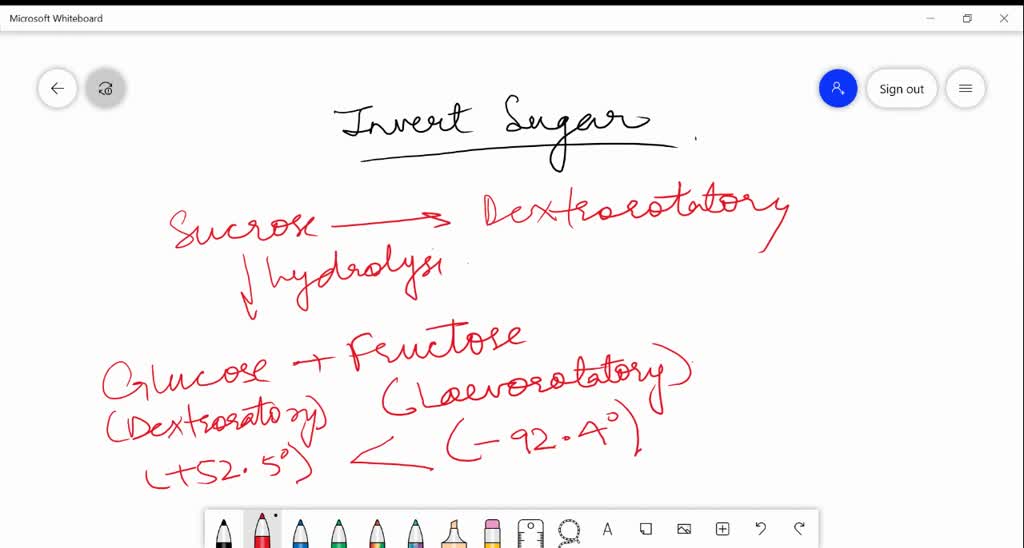 Microsoft Whiteboard
Sign out
Invert Sugar
Sucrose → Dextrorotatory
↓ hydrolysi
Glucose + Fructose
(Dextroratory) (Laevorotatory)
(+52.5°) < (-92.4°)
A